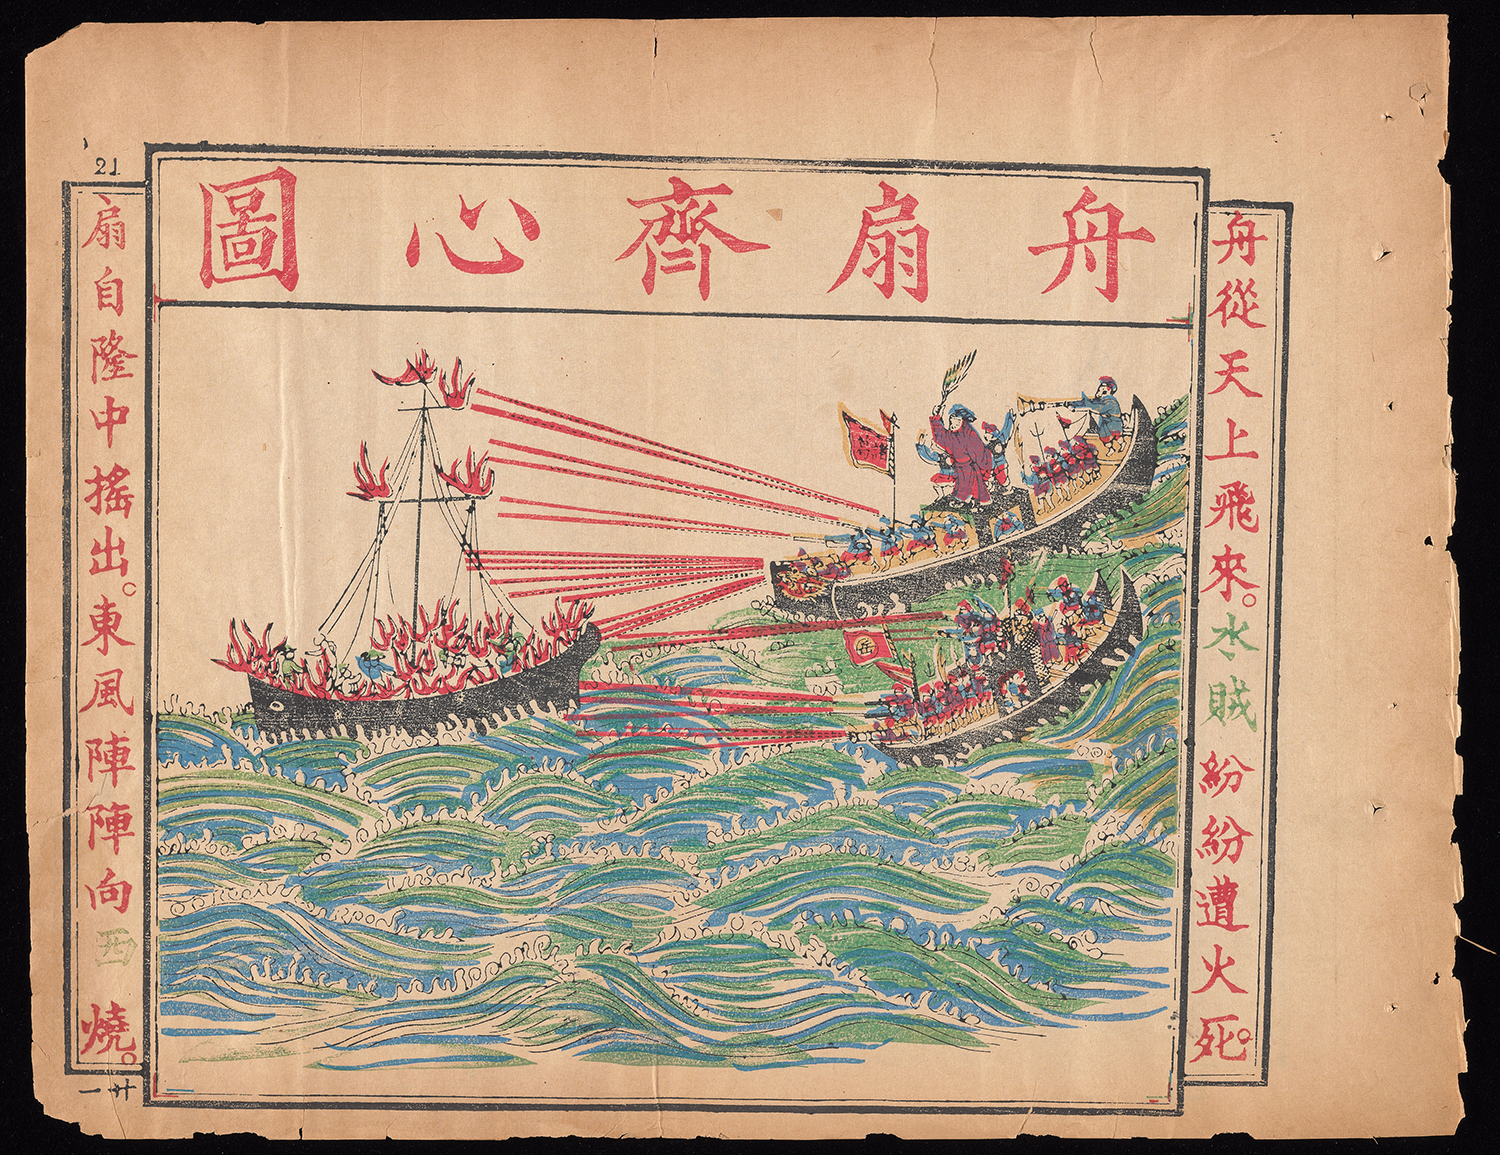 舟扇齊心圖
舟從天上飛來。水賊紛紛遭火死。
扇自隆中搖出。東風陣陣向西燒。
21
廿一
岳